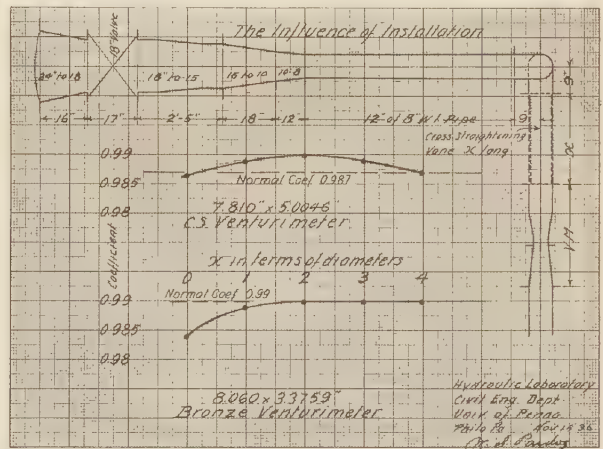 The Influence of Installation
18" Valve
24" to 18
18" to 15
15 to 10
10-8
16"
17"
2'-5"
18"
12"
12' of 8" W.I. Pipe
9"
9"
Cross Straightening
Vane X long
X
V.M.
Coefficient
0.99
0.985
0.98
Normal Coef 0.987
7.810" x 5.0046
C.S. Venturimeter
X in terms of diameters
0 1 2 3 4
Normal Coef 0.99
0.99
0.985
0.98
8.060 x 3.3759"
Bronze Venturimeter
Hydraulic Laboratory
Civil Eng. Dept.
Univ of Penna.
Phila Pa Nov 14 36